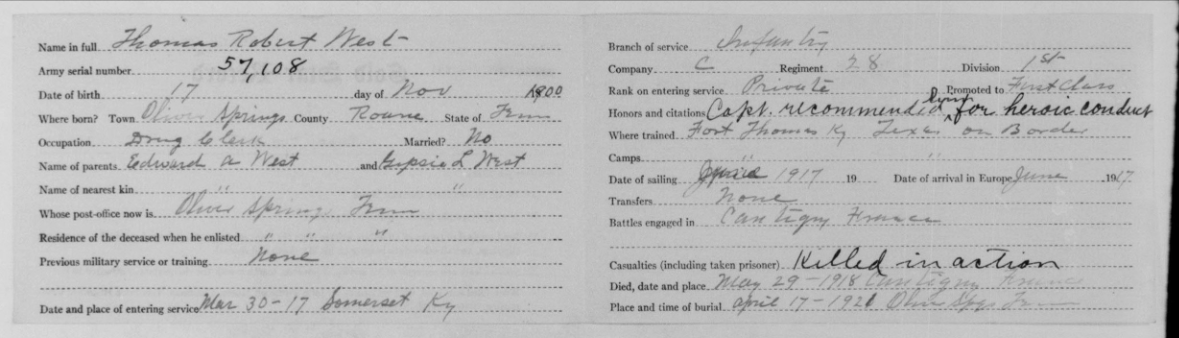 Name in full Thomas Robert West
Army serial number 57,108
Date of birth 17 day of Nov 1900
Where born? Town Oliver Springs County Roane State of Tenn
Occupation Drug Clerk Married? No
Name of parents Edward A West and Gipsie L West
Name of nearest kin " "
Whose post-office now is Oliver Springs Tenn
Residence of the deceased when he enlisted " " "
Previous military service or training None
Date and place of entering service Mar 30-17 Somerset Ky
Branch of service Infantry
Company C Regiment 28 Division 1st
Rank on entering service Private Promoted to First Class
Honors and citations Capt. recommended for heroic conduct
Where trained Fort Thomas Ky Texas on Border
Camps " "
Date of sailing June 1917 19 Date of arrival in Europe June 1917
Transfers None
Battles engaged in Cantigny France
Casualties (including taken prisoner) Killed in action
Died, date and place May 29-1918 Cantigny France
Place and time of burial April 17-1921 Oliver Spgs Tenn